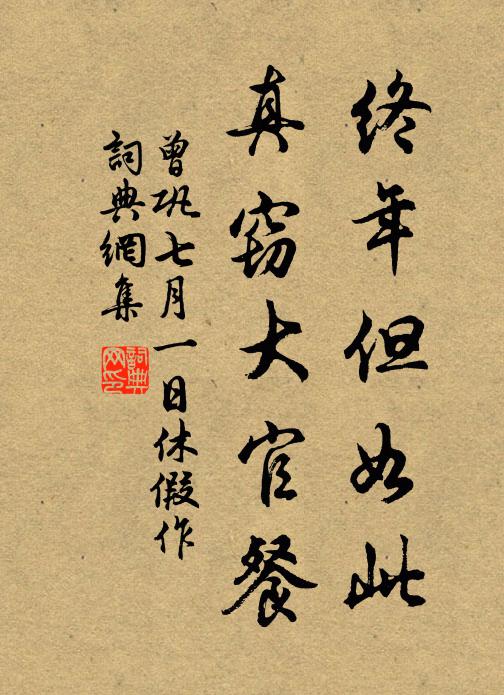 終年但如此
真竊大官餐
曾巩七月一日休假作
詞典網集
詞典
网印